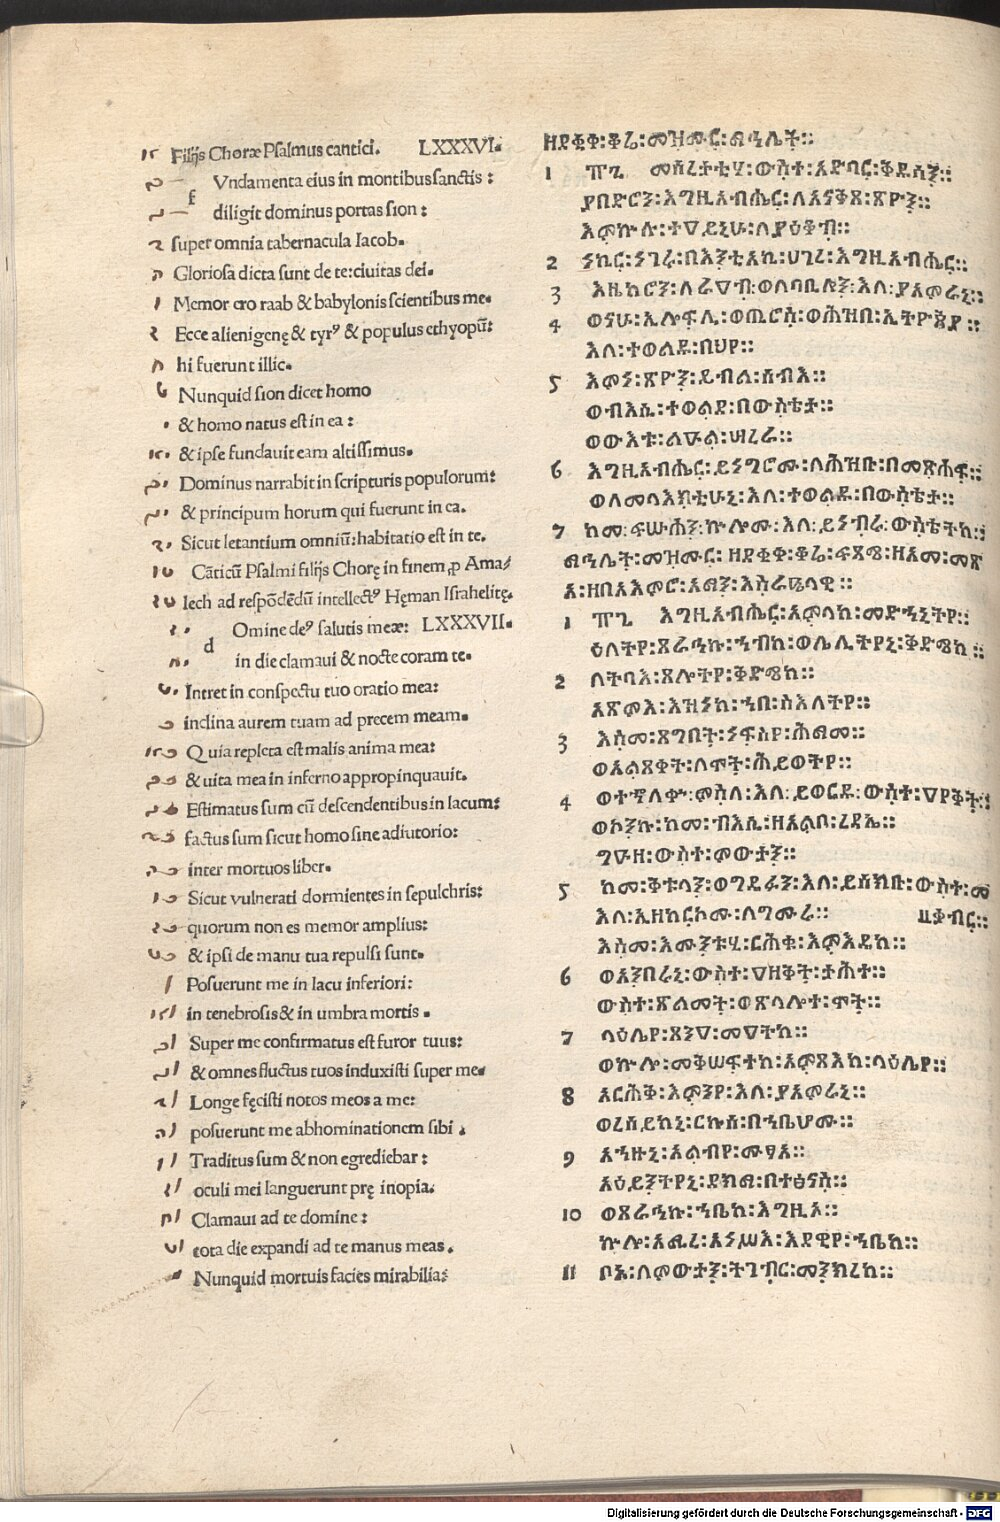 Filijs Choræ Psalmus cantici. LXXXVI.
f
Vndamenta eius in montibus sanctis:
diligit dominus portas sion:
super omnia tabernacula Iacob.
Gloriosa dicta sunt de te: ciuitas dei.
Memor ero raab & babylonis scientibus me.
Ecce alienigenę & tyrꝰ & populus ethyopũ:
hi fuerunt illic.
Nunquid sion dicet homo
& homo natus est in ea:
& ipse fundauit eam altissimus.
Dominus narrabit in scripturis populorum:
& principum horum qui fuerunt in ea.
Sicut letantium omniũ: habitatio est in te.
Cãticũ Psalmi filijs Chorę in finem ꝓ Ama/
lech ad respõdẽdũ intellectꝰ Hęman Israhelitę.
d
Omine deꝰ salutis meæ: LXXXVII.
in die clamaui & nocte coram te.
Intret in conspectu tuo oratio mea:
inclina aurem tuam ad precem meam.
Quia repleta est malis anima mea:
& uita mea in inferno appropinquauit.
Estimatus sum cũ descendentibus in lacum:
factus sum sicut homo sine adiutorio:
inter mortuos liber.
Sicut vulnerati dormientes in sepulchris:
quorum non es memor amplius:
& ipsi de manu tua repulsi sunt.
Posuerunt me in lacu inferiori:
in tenebrosis & in umbra mortis.
Super me confirmatus est furor tuus:
& omnes fluctus tuos induxisti super me.
Longe fęcisti notos meos a me:
posuerunt me abhominationem sibi.
Traditus sum & non egrediebar:
oculi mei languerunt prę inopia.
Clamaui ad te domine:
tota die expandi ad te manus meas.
Nunquid mortuis facies mirabilia:
ዘደቂቀ፡ቆሬ፡መዝሙር፡ማኅሌት።
1 ፹፮ መሰረታቲሃ፡ውስተ፡አድባር፡ቅዱሳን።
ያበድሮን፡እግዚአብሔር፡ለአናቅጸ፡ጽዮን።
እምኵሉ፡ተዓይኒሁ፡ለያዕቆብ።
2 ነኪር፡ነገሩ፡በእንቲአኪ፡ሀገረ፡እግዚአብሔር።
3 እዜከሮን፡ለራዓብ፡ወለባቢሎን፡እለ፡ያአምራኒ።
4 ወናሁ፡ኢሎፍሊ፡ወጢሮስ፡ወሕዝበ፡ኢትዮጵያ።
እለ፡ተወልዱ፡በህየ።
5 እምነ፡ጽዮን፡ይብል፡ሰብእ።
ወብእሲ፡ተወልደ፡በውስቴታ።
ወውእቱ፡ልዑል፡ሣረራ።
6 እግዚአብሔር፡ይነግሮሙ፡ለሕዝቡ፡በመጽሐፍ።
ወለመላእክቲሁኒ፡እለ፡ተወልዱ፡በውስቴታ።
7 ከመ፡ፍሡሓን፡ኵሎሙ፡እለ፡ይነብሩ፡ውስቴትኪ።
ማኅሌት፡መዝሙር፡ዘደቂቀ፡ቆሬ፡ፍጻሜ፡ዘአመ፡መጽ
አ፡ዘበአእምሮ፡አማን፡እስራኤላዊ።
1 ፹፯ እግዚአብሔር፡አምላከ፡መድኀኒትየ።
ዕለትየ፡ጸራኅኩ፡ኀቤከ፡ወሌሊትየኒ፡ቅድሜከ።
2 ለትባእ፡ጸሎትየ፡ቅድሜከ።
አጽምእ፡እዝነከ፡ኀበ፡ስእለትየ።
3 እስመ፡ጸግበት፡ነፍስየ፡ሕማመ።
ወአልጸቀት፡ለሞት፡ሕይወትየ።
4 ወተኈለቁ፡ምስለ፡እለ፡ይወርዱ፡ውስተ፡ዓዘቅት።
ወኮንኩ፡ከመ፡ብእሲ፡ዘአልቦ፡ረዳኤ።
ግዑዘ፡ውስተ፡ምውታን።
5 ከመ፡ቅቱላን፡ወግዱፋን፡እለ፡ይሰክቡ፡ውስተ፡መ
እለ፡ኢዘከርኮሙ፡ለግሙራ። ቃብር።
እስመ፡እሙንቱሂ፡ርሕቁ፡እምእዴከ።
6 ወአንበሩኒ፡ውስተ፡ዓዘቅት፡ታሕተ።
ውስተ፡ጽልመት፡ወጽላሎተ፡ሞት።
7 ላዕሌየ፡ጸንዓ፡መዓትከ።
ወኵሎ፡መቅሠፍተከ፡አምጻእከ፡ላዕሌየ።
8 አርሐቅ፡እምኔየ፡እለ፡ያአምሩኒ።
ወረሰይከኒ፡ርኩሰ፡በኀቤሆሙ።
9 አኀዙኒ፡አልብየ፡ሙፃአ።
አዕይንትየኒ፡ደክማ፡በተፅናስ።
10 ወጸራኅኩ፡ኀቤከ፡እግዚኦ።
ኵሎ፡አሚረ፡አነሥእ፡እደዊየ፡ኀቤከ።
11 ቦኑ፡ለምውታን፡ትገብር፡መንክረከ።
Digitalisierung gefördert durch die Deutsche Forschungsgemeinschaft - DFG